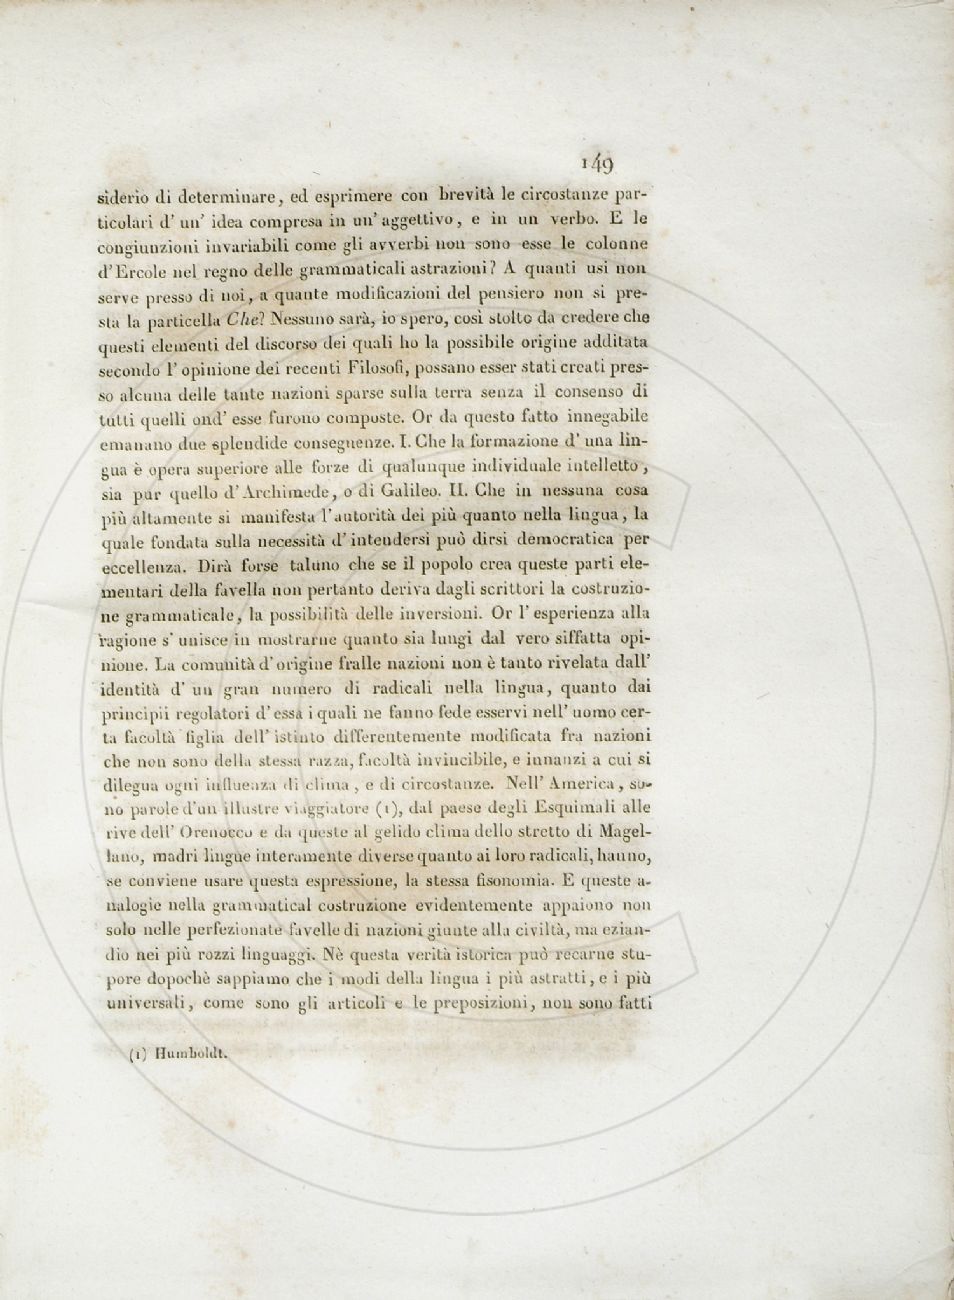 149
siderio di determinare, ed esprimere con brevità le circostanze par-
ticolari d' un' idea compresa in un' aggettivo, e in un verbo. E le
congiunzioni invariabili come gli avverbi non sono esse le colonne
d'Ercole nel regno delle grammaticali astrazioni? A quanti usi non
serve presso di noi, a quante modificazioni del pensiero non si pre-
sta la particella Che? Nessuno sarà, io spero, così stolto da credere che
questi elementi del discorso dei quali ho la possibile origine additata
secondo l' opinione dei recenti Filosofi, possano esser stati creati pres-
so alcuna delle tante nazioni sparse sulla terra senza il consenso di
tutti quelli ond' esse furono composte. Or da questo fatto innegabile
emanano due splendide conseguenze. I. Che la formazione d' una lin-
gua è opera superiore alle forze di qualunque individuale intelletto,
sia pur quello d'Archimede, o di Galileo. II. Che in nessuna cosa
più altamente si manifesta l'autorità dei più quanto nella lingua, la
quale fondata sulla necessità d' intendersi può dirsi democratica per
eccellenza. Dirà forse taluno che se il popolo crea queste parti ele-
mentari della favella non pertanto deriva dagli scrittori la costruzio-
ne grammaticale, la possibilità delle inversioni. Or l' esperienza alla
ragione s' unisce in mostrarne quanto sia lungi dal vero siffatta opi-
nione. La comunità d' origine fralle nazioni non è tanto rivelata dall'
identità d' un gran numero di radicali nella lingua, quanto dai
principii regolatori d' essa i quali ne fanno fede esservi nell' uomo cer-
ta facoltà figlia dell' istinto differentemente modificata fra nazioni
che non sono della stessa razza, facoltà invincibile, e innanzi a cui si
dilegua ogni influenza di clima, e di circostanze. Nell' America, so-
no parole d'un illustre viaggiatore (1), dal paese degli Esquimali alle
rive dell' Orenocco e da queste al gelido clima dello stretto di Magel-
lano, madri lingue interamente diverse quanto ai loro radicali, hanno,
se conviene usare questa espressione, la stessa fisonomia. E queste a-
nalogie nella grammatical costruzione evidentemente appaiono non
solo nelle perfezionate favelle di nazioni giunte alla civiltà, ma ezian-
dio nei più rozzi linguaggi. Nè questa verità istorica può recarne stu-
pore dopochè sappiamo che i modi della lingua i più astratti, e i più
universali, come sono gli articoli e le preposizioni, non sono fatti
(1) Humboldt.